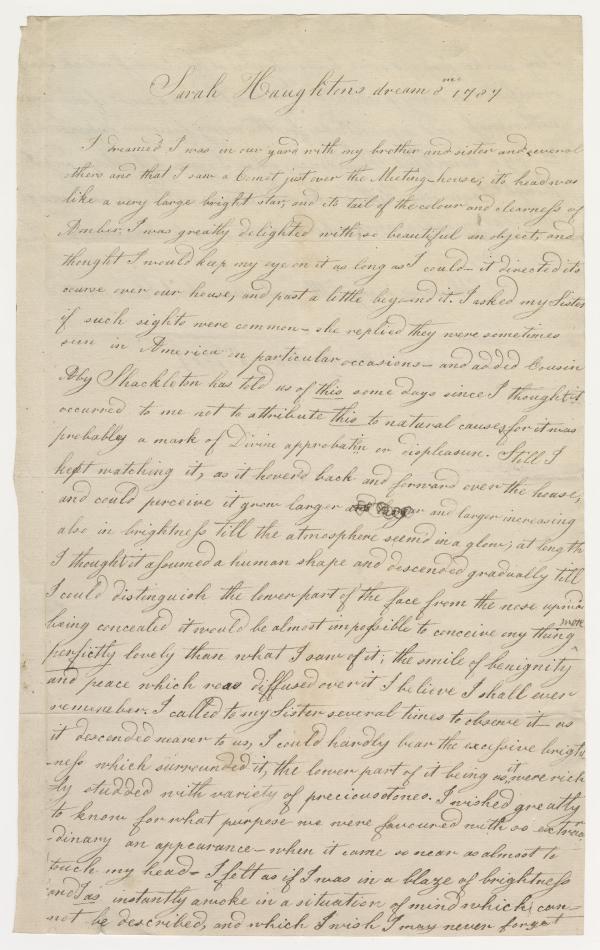 Sarah Haughtons dream 8mo 1787
I dreamed I was in our yard with my brother and sister and several
others and that I saw a Comet just over the Meeting-house; its head was
like a very large bright star, and its tail of the colour and clearness of
Amber. I was greatly delighted with so beautiful an object, and
thought I would keep my eye on it as long as I could - it directed its
course over our house, and past a little beyond it. I asked my Sister
if such sights were common - she replied they were sometimes
seen in America on particular occasions - and added Cousin
Aby Shackleton has told us of this some days since I thought it
occurred to me not to attribute this to natural causes, for it was
probabley a mark of Divine approbatin or displeasure. Still I
kept watching it, as it hover'd back and forward over the house,
and could perceive it grow larger and larger increasing
also in brightness till the atmosphere seem'd in a glow; at length
I thought it assumed a human shape and descended gradually till
I could distinguish the lower part of the face from the nose upwards
being concealed it would be almost impossible to conceive any thing more
perfictly lovely than what I saw of it; the smile of benignity
and peace which was diffused over it I believe I shall ever
remember. I called to my Sister several times to observe it - as
it descended nearer to us, I could hardly bear the excessive bright
-ness which surrounded it, the lower part of it being as it were rich
-ly studded with variety of precious stones. I wished greatly
to know for what purpose we were favoured with so extraor
-dinary an appearance - when it came so near as almost to
touch my head - I felt as if I was in a blaze of brightness
and as instantly awoke in a situation of mind which can-
not be described, and which I wish I may never forget